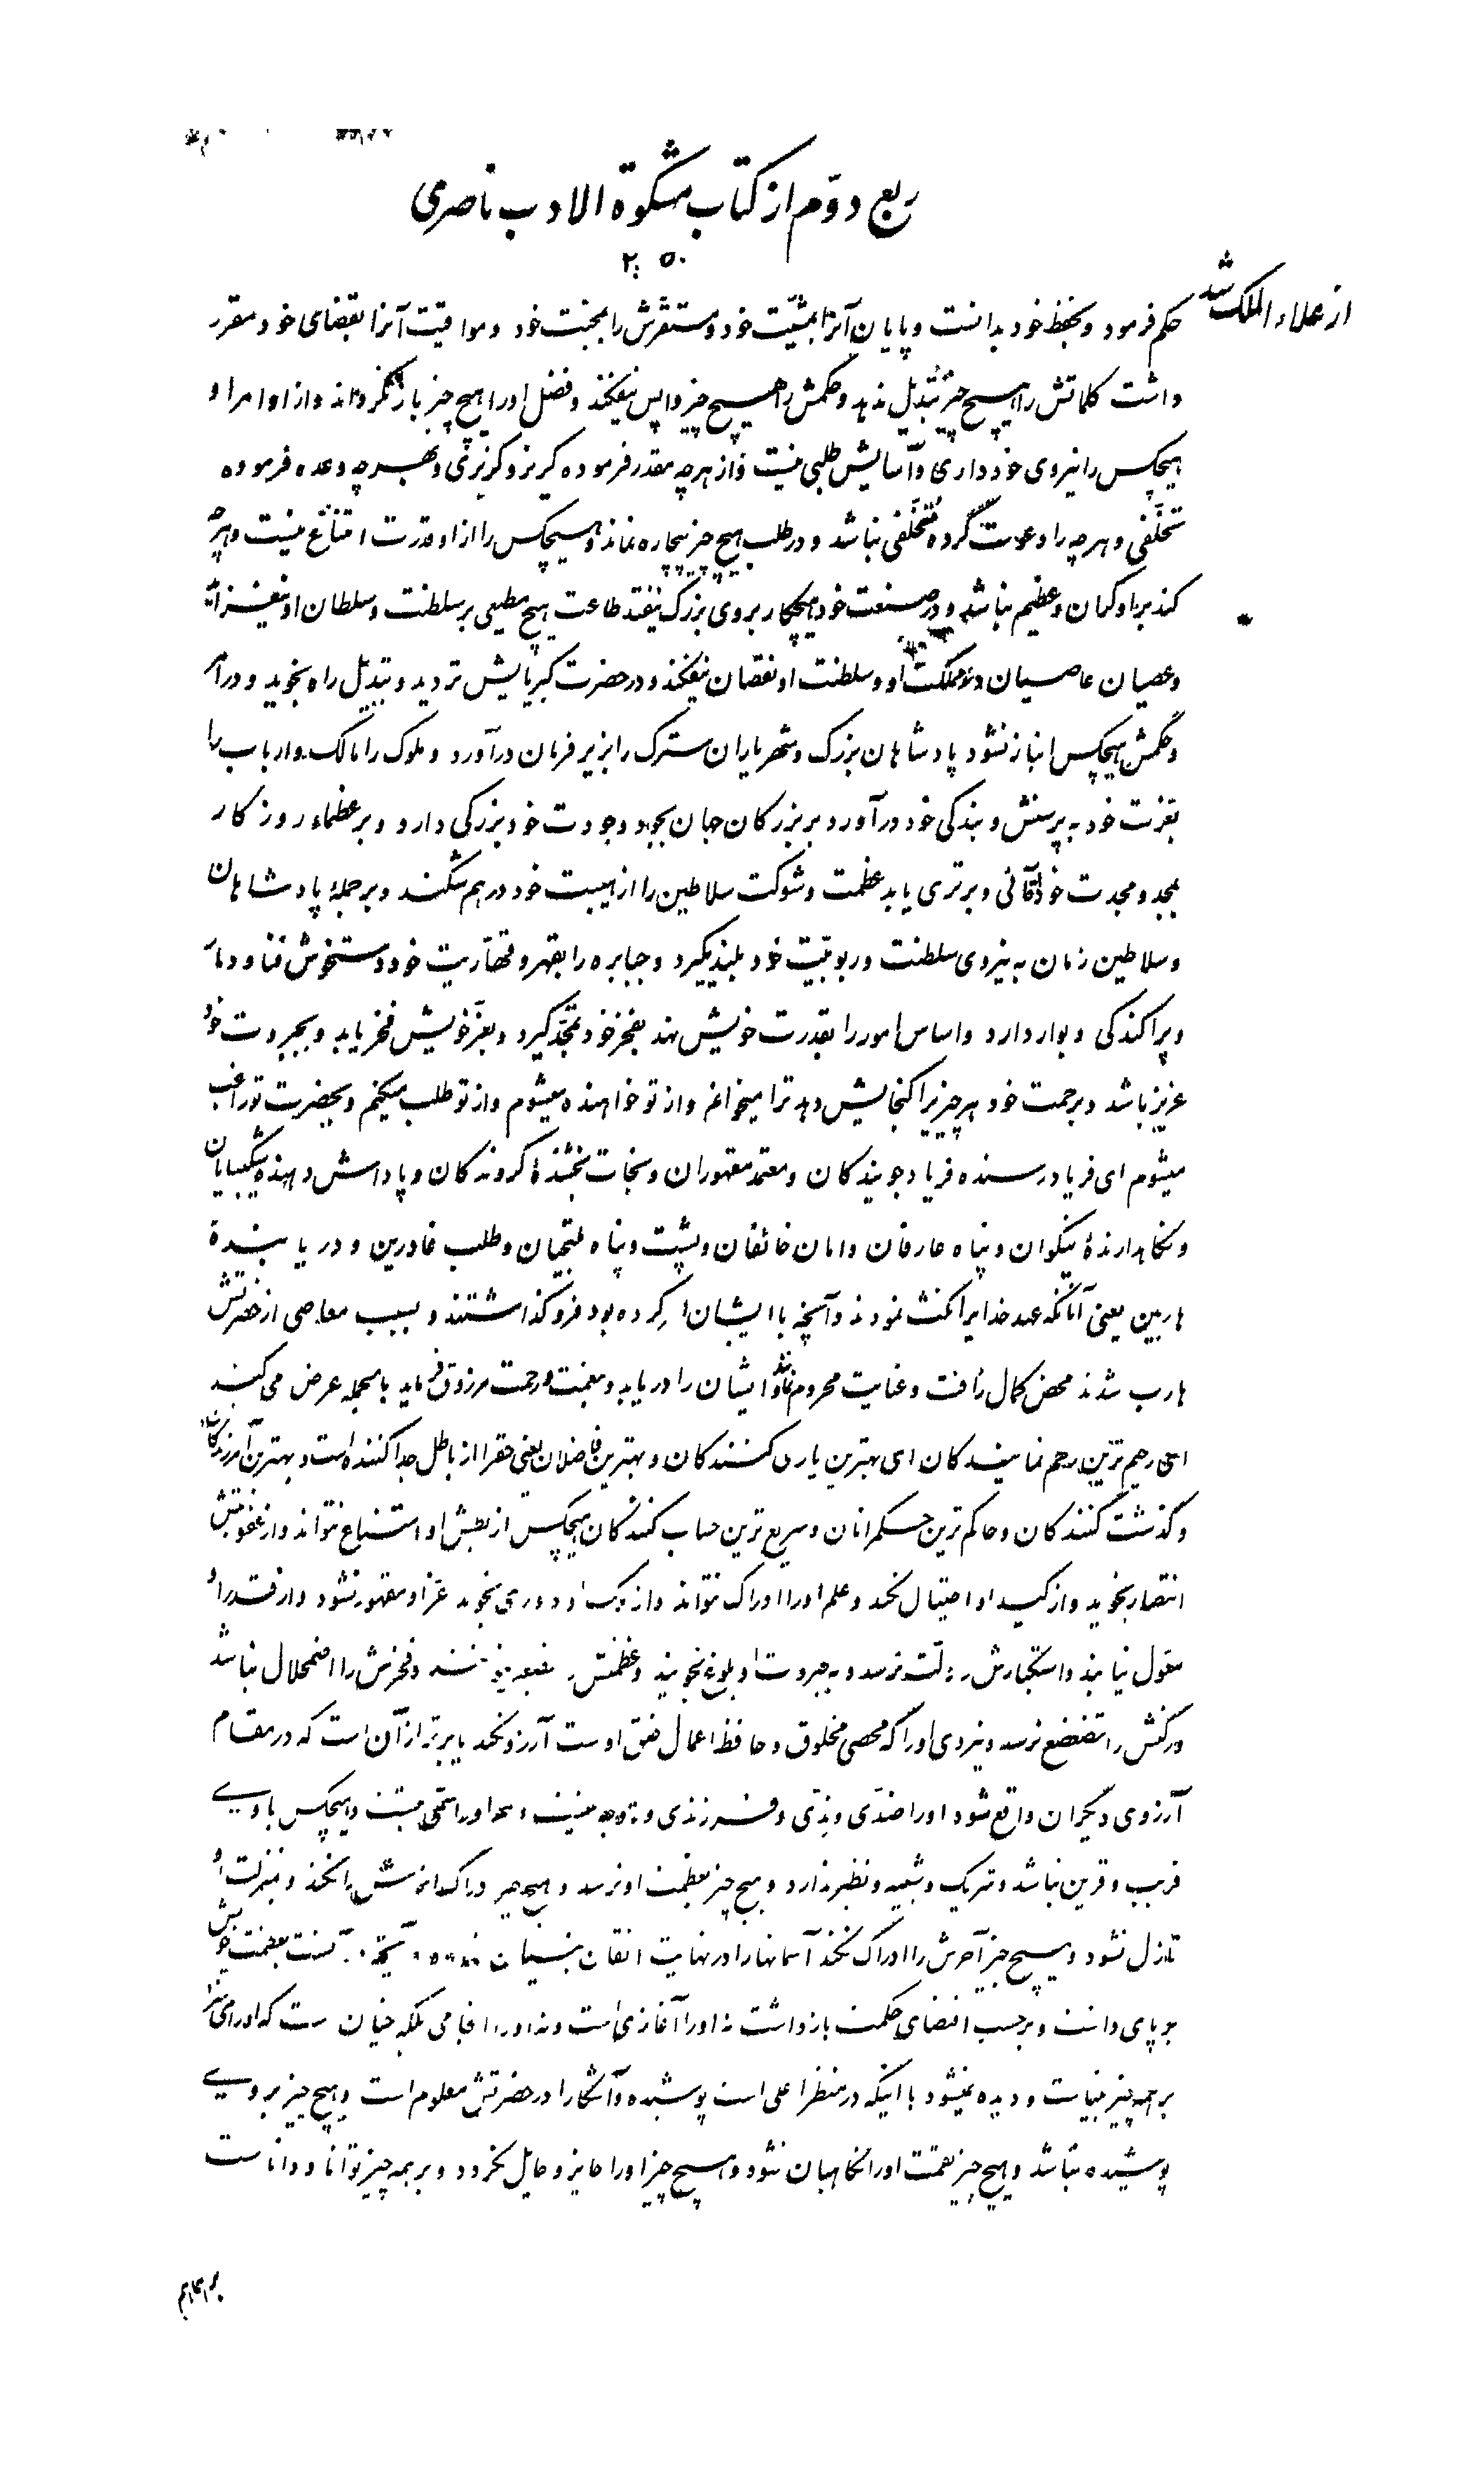 ربع دوّم از کتاب مشکوة الادب ناصری
۲۵۰
از علاء الملک شد
حکم فرمود و بحفظ خود بدانست و پایان آنرا بمشیّت خود و مستقرّش را بمحبت خود و مواقیت آنرا بقضای خود مقرر
داشت کلماتش را هیچ چیز تبدیل ندهد و حکمش را هیچ چیز واپس نیفکند و فضل او را هیچ چیز باز نگرداند و از اوامر او
هیچکس را نیروی خودداری و آسایش طلبی نیست و از هرچه مقدر فرموده گریز و گزیری و بهرچه وعده فرموده
تخلّفی و هرچه را دعوت کرده متخلّفی نباشد و در طلب هیچ چیز بیچاره نماند و هیچکس را از او قدرت امتناع نیست و هرچه
کند بر او گران و عظیم نباشد و در صنعت خود هیچکار بروی بزرگ نیفتد طاعت هیچ مطیعی بر سلطنت و سلطان او نیفزاید
و عصیان عاصیان در مملکت او و سلطنت او نقصان نیفکند و در حضرت کبریایش تردید و تبدیل راه نجوید و در امر
و حکمش هیچکس انباز نشود پادشاهان بزرگ و شهریاران سترک را بزیر فرمان درآورد و ملوک را مالک و ارباب را
بعزت خود به پرستش و بندگی خود درآورد و بر بزرگان جهان بجود وجودت خود بزرگی دارد و بر عظماء روزگار
بمجد و مجدت خود آقائی و برتری یابد عظمت و شوکت سلاطین را از هیبت خود درهم شکند و بر جملۀ پادشاهان
و سلاطین زمان به نیروی سلطنت و ربوبیّت خود بلندی گیرد و جبابره را بقهر و قهّاریت خود دستخوش فنا و دمار
و پراکندگی و بوار دارد و اساس امور را بقدرت خویش نهد بفخر خود تمجّد گیرد و بعزّ خویش فخر یابد و بجبروت خود
عزیز باشد و برحمت خود هر چیز را گنجایش دهد ترا میخوانم و از تو خواهنده میشوم و از تو طلب میکنم و بحضرت تو راغب
میشوم ای فریاد رسنده فریاد جویندگان و معتمد مقهوران و نجات بخشندۀ گروندگان و پاداش دهنده شکیبایان
و نگاهدارندۀ نیکوان و پناه عارفان و امان خائفان و پشت و پناه ملتجیان و طلب غادرین و دریابندۀ
هاربین یعنی آنانکه عهد خدایرا نکث نمودند و آنچه با ایشان کرده بود فروگذاشتند و بسبب معاصی از حضرتش
هارب شدند محض کمال رأفت و عنایت محروم نماند و ایشان را دریابد و بنعمت و رحمت مرزوق فرماید بالجمله عرض می کند
ای رحیم ترین رحم نمایندگان ای بهترین یاری کنندگان و بهترین فاضلان یعنی حق را از باطل جدا کننده است و بهترین آمرزندگان
و گذشت کنندگان و حاکم ترین حکمرانان و سریع ترین حساب کنندگان هیچکس از بطش او امتناع نتواند و از عقوبتش
انتصار نجوید و از کید او احتیال نکند و علم او را ادراک نتواند و از او دوری نجوید عزّ او مقهور نشود
و استکبارش را ذلت نرسد و به جبروت او بلوغ نجویند و عظمتش و فخرش را اضمحلال نباشد
و رکنش را تضعضع نرسد و نیروی او را که محصی مخلوق و حافظ اعمال خلق اوست آرزو نکند یا برتر از آن است که در مقام
آرزوی دیگران واقع شود او را ضدّی و ندّی و فرزندی و زوجه نیست و او را سمّی نیست و هیچکس با وی
قریب و قرین نباشد و شریک و شبیه و نظیر ندارد و هیچ چیز بعظمت او نرسد و هیچ چیز ادراک را نکند و بمنزلت او
نازل نشود و هیچ چیز آخرش را ادراک نکند آسمانها را در نهایت اتقان بعظمت خویش
بر پای داشت و بر حسب اقتضای حکمت بازداشت نه او را آغازی است و نه او را انجامی بلکه چنان است که
بر همه چیز بیناست و دیده نمیشود با اینکه در منظر اعلی است پوشیده و آشکارا در حضرتش معلوم است و هیچ چیز بر وی
پوشیده نباشد و هیچ چیز نقمت او را نگاهبان نشود و هیچ چیز او را حایز و حایل نگردد و بر همه چیز توانا و داناست